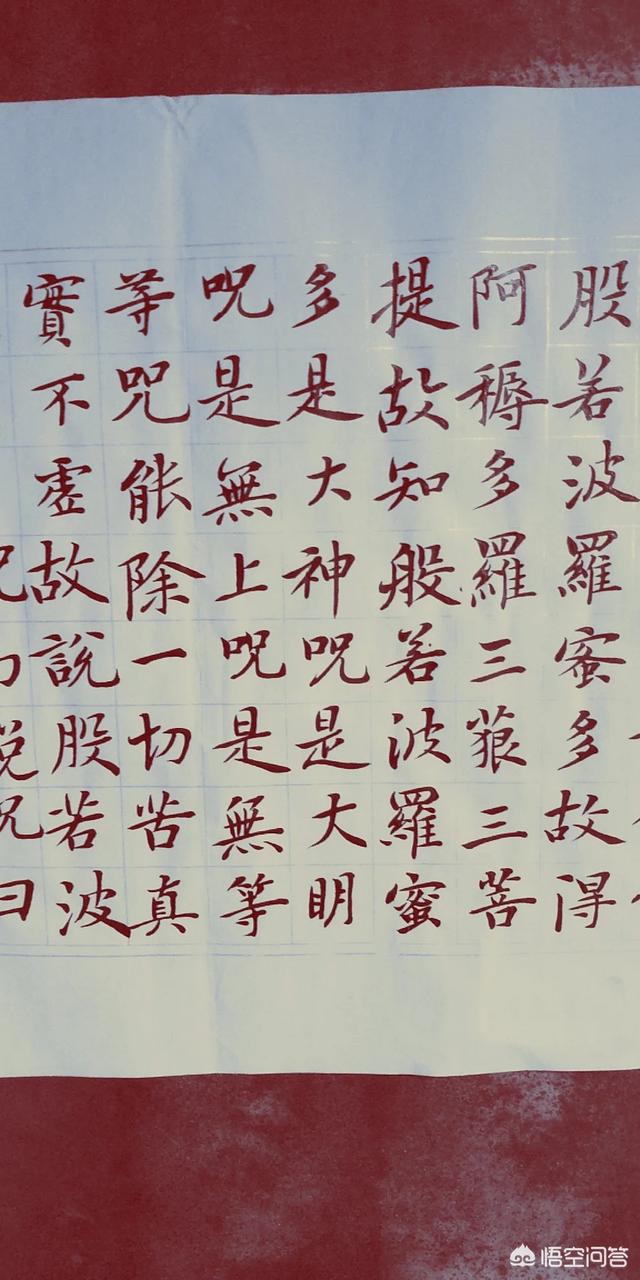 股若波羅蜜多故得
阿耨多羅三藐三菩
提故知般若波羅蜜
多是大神呪是大明
呪是無上呪是無等
等咒能除一切苦真
實不虛故說股若波
說呪曰
悟空问答